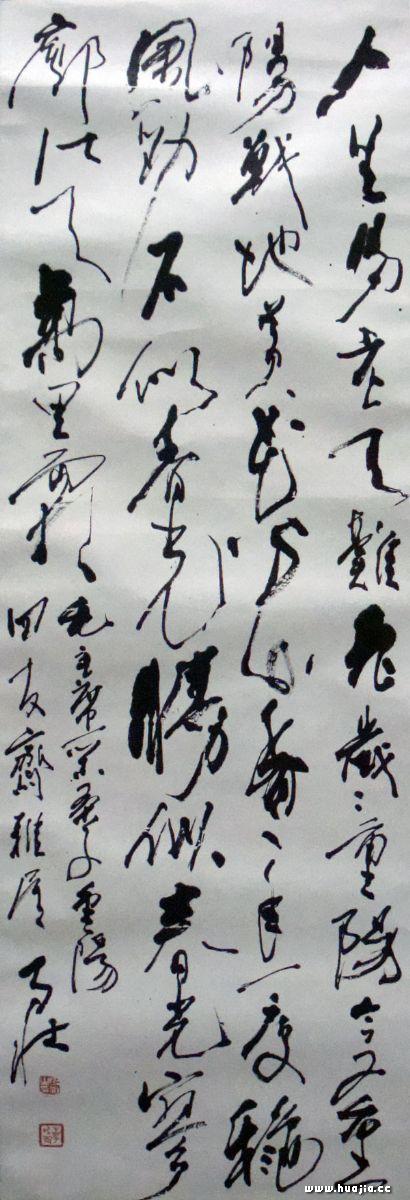 人生易老天難老歲々重陽今又重
陽戰地黃花分外香一年一度龝
風勁不似春光勝似春光寥
廓江天萬里霜
毛主席采桑子重陽
四友齋雅屬
www.huajia.cc